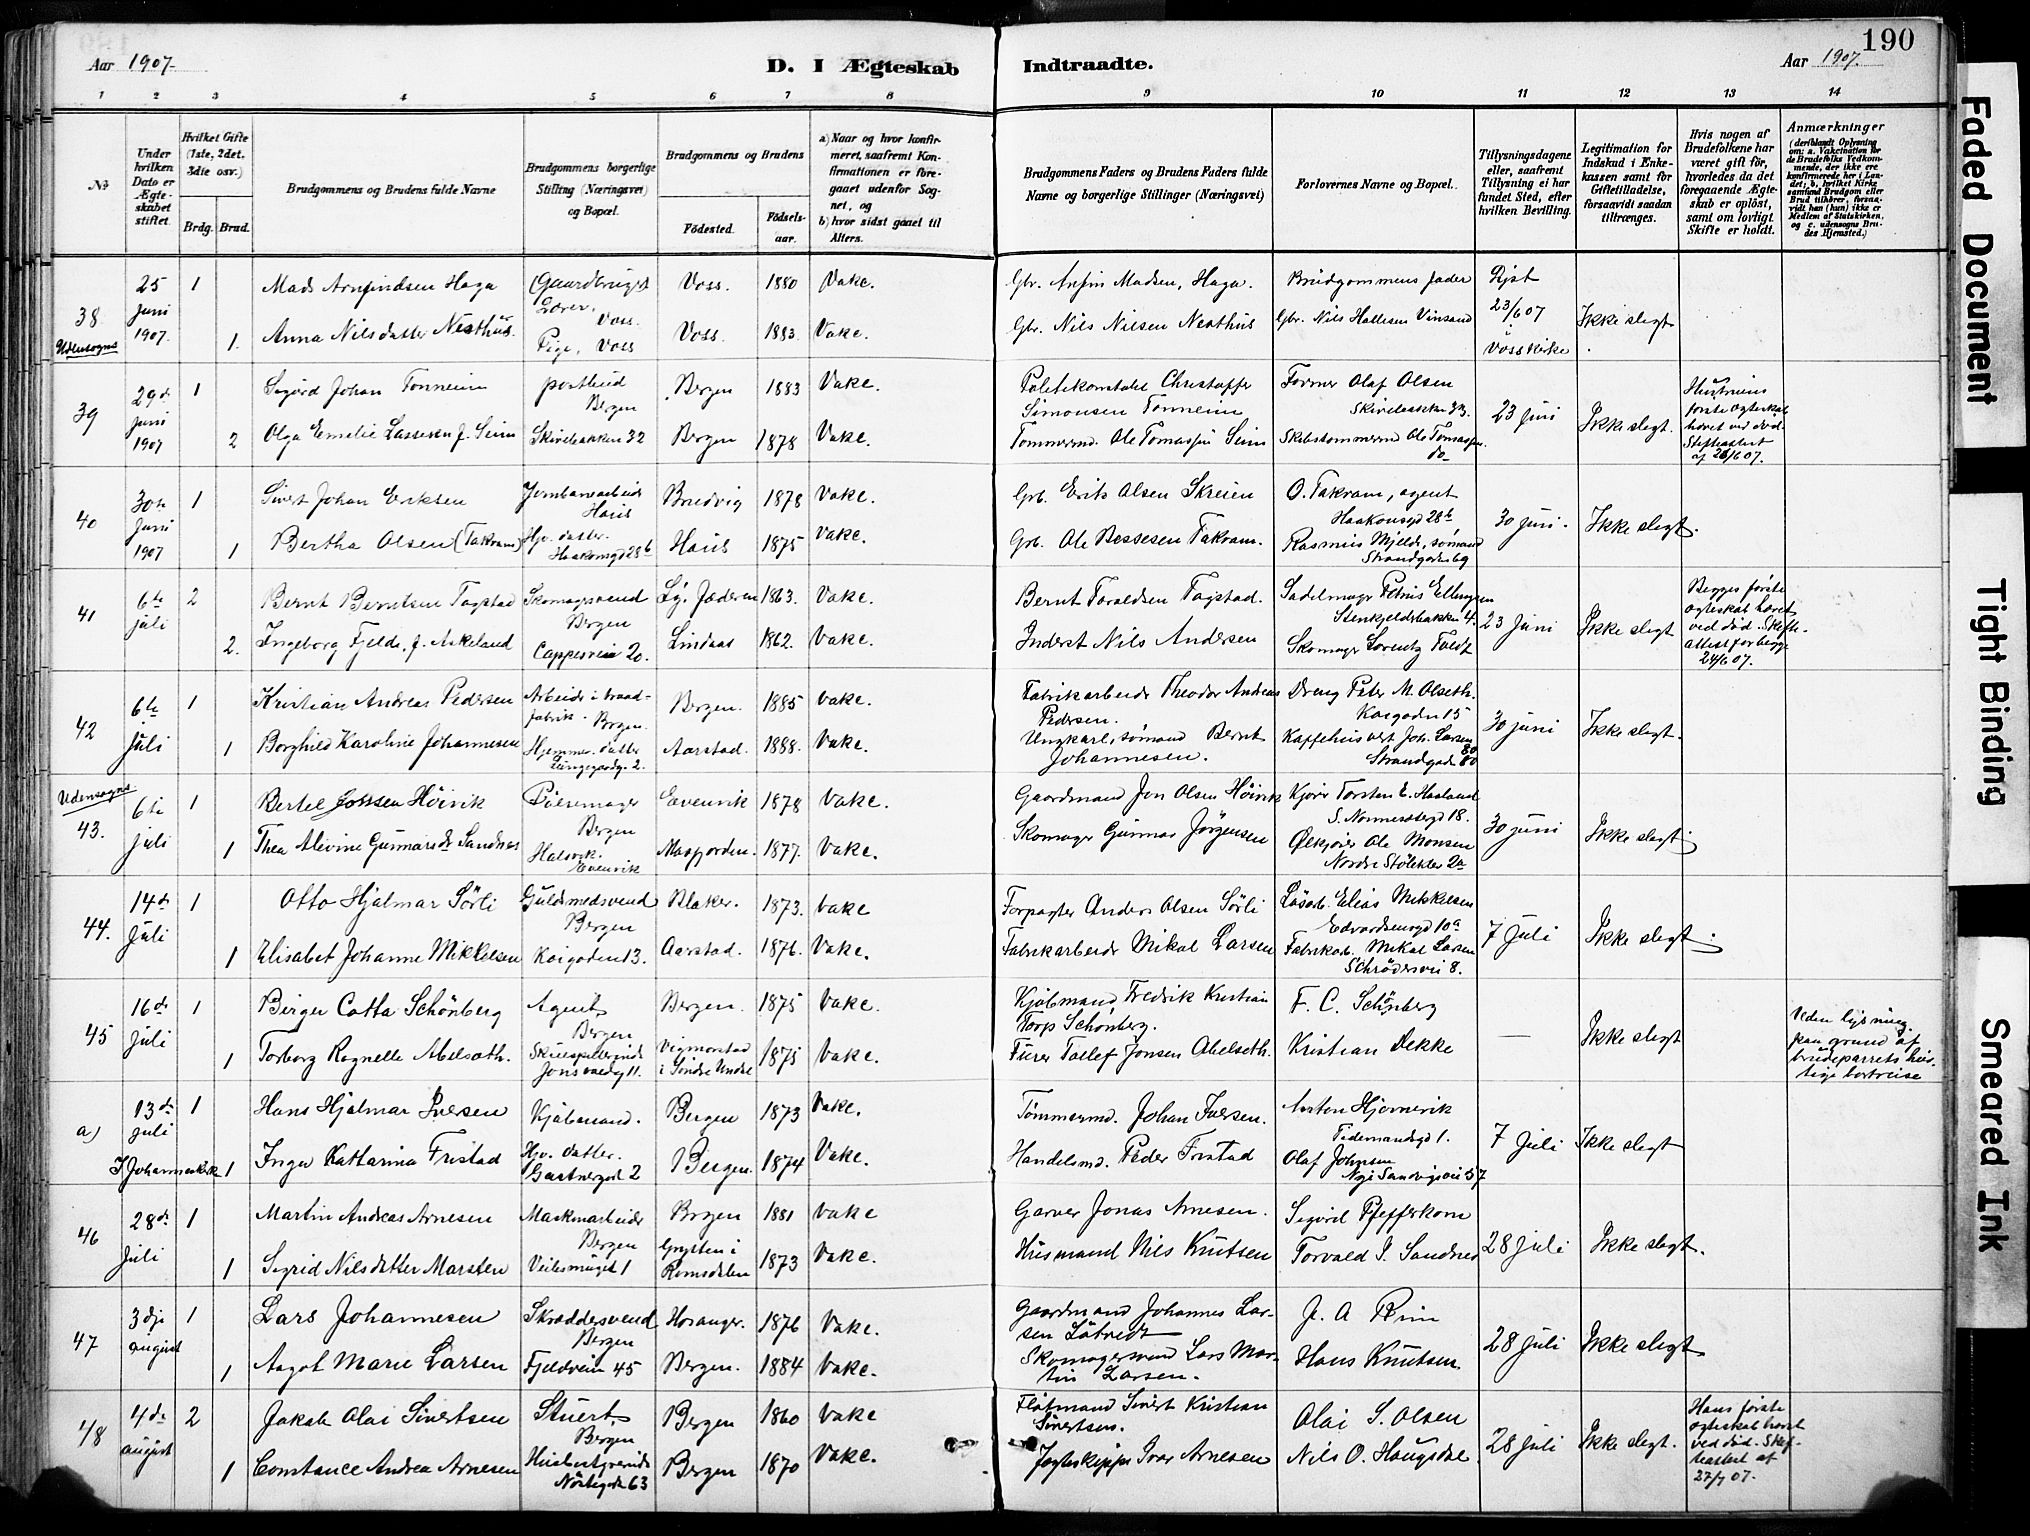 190
Aar 1907.
D. I Ægteskab
Indtraadte.
Aar 1907.
1 2 3 4 5 6 7 8 9 10 11 12 13 14
No
Under hvilken Dato er Ægteskabet stiftet.
Hvilket Gifte (1ste, 2det, 3die osv.)
Brdg. Brud.
Brudgommens og Brudens fulde Navne
Brudgommens borgerlige Stilling (Næringsvei) og Bopæl.
Brudgommens og Brudens
Fødested. Fødselsaar.
a) Naar og hvor konfirmeret, saafremt Konfirmationen er foregaaet udenfor Sognet, og
b) hvor sidst gaaet til Alters.
Brudgommens Faders og Brudens Faders fulde Navne og borgerlige Stillinger (Næringsvei)
Forlovernes Navne og Bopæl.
Tillysningsdagene eller, saafremt Tillysning ei har fundet Sted, efter hvilken Bevilling.
Legitimation for Indskud i Enkekassen samt for Giftetilladelse, forsaavidt saadan tiltrænges.
Hvis nogen af Brudefolkene har været gift før, hvorledes da det foregaaende Ægteskab er opløst, samt om lovligt Skifte er holdt.
Anmærkninger (deriblandt Oplysning om: a. Vakcination for de Brudefolks Vedkommende, der ikke ere konfirmerede her i Landet; b. hvilket Kirkesamfund Brudgom eller Brud tilhører, forsaavidt han (hun) ikke er Medlem af Statskirken, og c. udensogns Brudes Hjemsted.)
38 Udensogns 25 Juni 1907. 1 Mads Arnfindsen Haga (Gaardbruger) Lærer, Voss. Voss. 1880 Vake. Gbr. Anfin Madsen, Haga. Brudgommens fader Lyst 23/6 07 i Voss kirke Ikke slegt.
1. Anna Nilsdatter Nesthus. Pige, Voss Voss. 1883. Vake. Gbr. Nils Nilsen Nesthus Gbr. Nils Hallesen Vinsand
39 29de Juni 1907 1 Sigurd Johan Tonneim postbud Bergen Bergen 1883 Vake. Politikonstabel Christoffer Simonsen Tonneim Former Olaf Olsen Skivebakken 33. 23 Juni Ikke slegt. Hustruens første ægteskab hævet ved død. Skifteattest af 26/6 07.
2 Olga Emelie Lassesen f. Seim Skivebakken 32 Bergen 1878 Vake. Tømmermd. Ole Tomassen Seim Skibstømmermd Ole Tomassen do
40 30te Juni 1907 1 Sivert Johan Eriksen Jernbanearbeider Haus Bruvig 1878 Vake. Grb. Erik Olsen Skreien O. Takvam, agent Haakonsgd 28b 30 juni. Ikke slegt.
1 Bertha Olsen (Takvam) Hjv. datter. Haakonsgd 28b Haus 1875 Vake. Grb. Ole Bessesen Takvam. Rasmus Mjelde, sømand Strandgaden 69
41 6te juli 2 Bernt Berntsen Fagstad Skomagersvend Bergen Lg. Jæderen 1863. Vake. Bernt Toraldsen Fagstad. Sadelmager Petrus Ellingsen Stenkjelderbakken 4. 23 Juni Ikke slegt Begges første ægteskab hævet ved død. Skifteattest for begge 24/6 07.
2. Ingeborg Fjelds, f. Askeland Cappesvei 20. Lindaas 1862. Vake. Inderst Nils Andersen Skomager Lorentz Tvedt
42 6te Juli 1 Kristian Andreas Pedersen Arbeider i traadfabrik. Bergen. Bergen. 1885 Vake. Fabrikarbeider Theodor Andreas Pedersen. Dreng Peter M. Olseth. Kaigaden 15 30 juni Ikke slegt.
1 Borghild Karoline Johannesen Hjemmev. datter Lungegaardsg. 2. Aarstad. 1888. Vake. Ungkarl, sømand Bernt Johannesen. Kaffehusvert Joh. Larsen Strandgade 80
Udensogns 43. 6te juli 1 Bertel Jonsen Høivik Pølsemager Bergen Evenvik 1878 Vake. Gaardmand Jon Olsen Høivik Kjører Torsten E. Haaland S. Nonnesætergd 18. 30 juni Ikke slegt.
1 Thea Alvine Gunnarsdr Sandnes Halsvik. Evenvik Masfjorden. 1877. Vake. Skomager Gunnar Jørgensen Ølkjører Ole Monsen Nordre Stølekler 2a
44. 14de Juli 1 Otto Hjalmar Sörli Guldsmedsvend Bergen Blaker. 1873. Vake Forpagter Anders Olsen Sörli Løsarb. Elias Mikkelsen Edvardsensgd 10a 7 Juli Ikke slegt.
1 Elisabet Johanne Mikkelsen Kaigaden 13. Aarstad. 1876. Vake. Fabrikarbeider Mikal Larsen Fabrikarb. Mikal Larsen Schrødersvei 8.
45 16de Juli 1 Birger Cotta Schönberg Agent Bergen Bergen. 1875 Vake. Kjøbmand Fredrik Kristian Torp Schönberg. F. C. Schönberg — Ikke slegt Uden lysning. paa grund af brudeparrets hastige bortreise
1 Torborg Ragnelle Abelseth. Skuespillerinde Jonsvoldsg 11. Vigmostad i Søndre Undal 1875 Vake. Furer Tallef Jonsen Abelseth. Kristian Dekke
a) 13de juli I Johanneskirke 1 Hans Hjalmar Iversen Kjøbmand. Bergen 1873 Vake. Tømmermd. Johan Iversen. Anton Hjørnevik Tidemandsgd 1. 7 Juli Ikke slegt
1 Inga Kattarina Fristad Hjv. datter. Gartnergd 2 Bergen. 1874 Vake. Handelsmd. Peder Fristad Olaf Johnsen Nye Sandvigsvei 57
46 28de Juli 1 Martin Andreas Arnesen Maskinarbeider Bergen Bergen 1881 Vake Garver Jonas Arnesen. Sigurd Pfefferkorn 28 Juli Ikke slegt.
1 Sigrid Nilsdatter Marstein Veitesmuget 1 Grytten i Romsdalen 1873 Vake. Husmand Nils Knutsen Torvald I. Sandnes
47 3dje august 1 Lars Johannesen Skræddersvend Bergen Hosanger. 1876 Vake. Gaardmand Johannes Larsen Låtvedt J. A. Rein 28 juli Ikke slegt
1 Aagot Marie Larsen Fjeldveien 45 Bergen. 1884 Vake. Skomagersvend Lars Martin Larsen. Hans Knutsen
48 4de august 2 Jakob Olai Sivertsen Stuert, Bergen Bergen 1860 Vake Fløtmand Sivert Kristian Sivertsen. Olai S. Olsen 28 Juli Ikke slegt. Hans første ægteskab hævet ved død. Skifteattest af 27/7 07.
1 Constance Andrea Arnesen Husbestyrerinde Nöstegd 63 Bergen 1870 Vake. Jagteskipper Ivar Arnesen Nils O. Haugsdal
Faded Document
Tight Binding
Smeared Ink